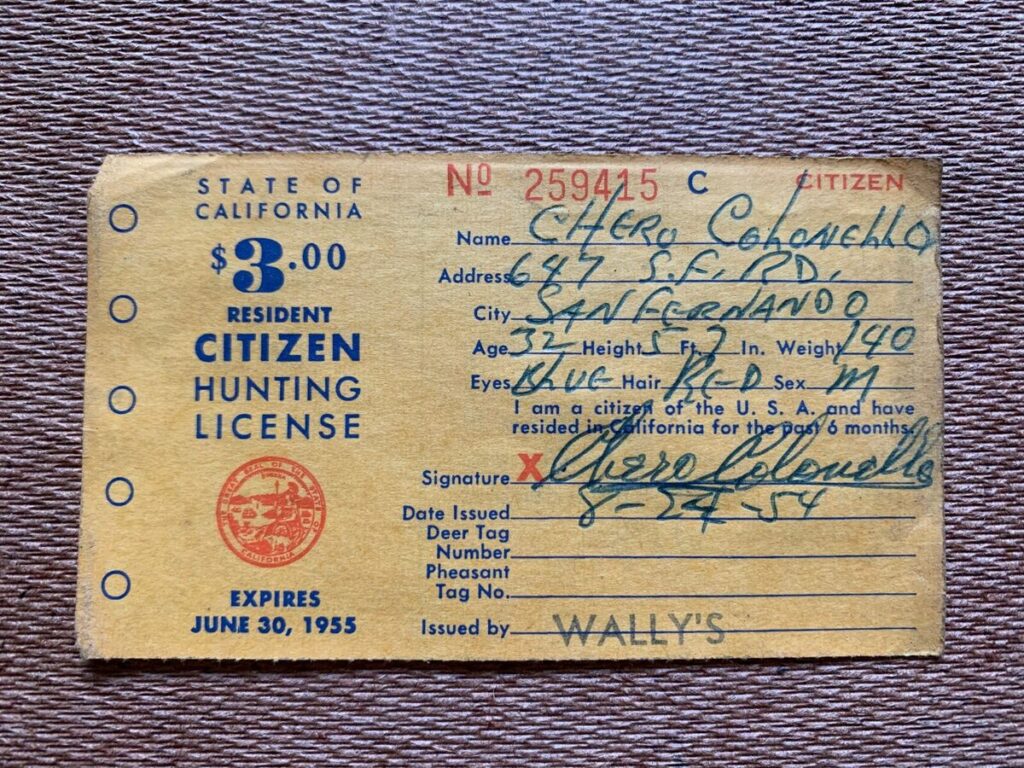 STATE OF
CALIFORNIA
$3.00
RESIDENT
CITIZEN
HUNTING
LICENSE
EXPIRES
JUNE 30, 1955
Nº 259415 C CITIZEN
Name CHERO COLONELLO
Address 647 S.F. RD.
City SAN FERNANDO
Age 32 Height 5 Ft. 7 In. Weight 140
Eyes BLUE Hair RED Sex M
I am a citizen of the U. S. A. and have
resided in California for the past 6 months.
Signature X Chero Colonello
Date Issued 8-24-54
Deer Tag
Number
Pheasant
Tag No.
Issued by WALLY'S